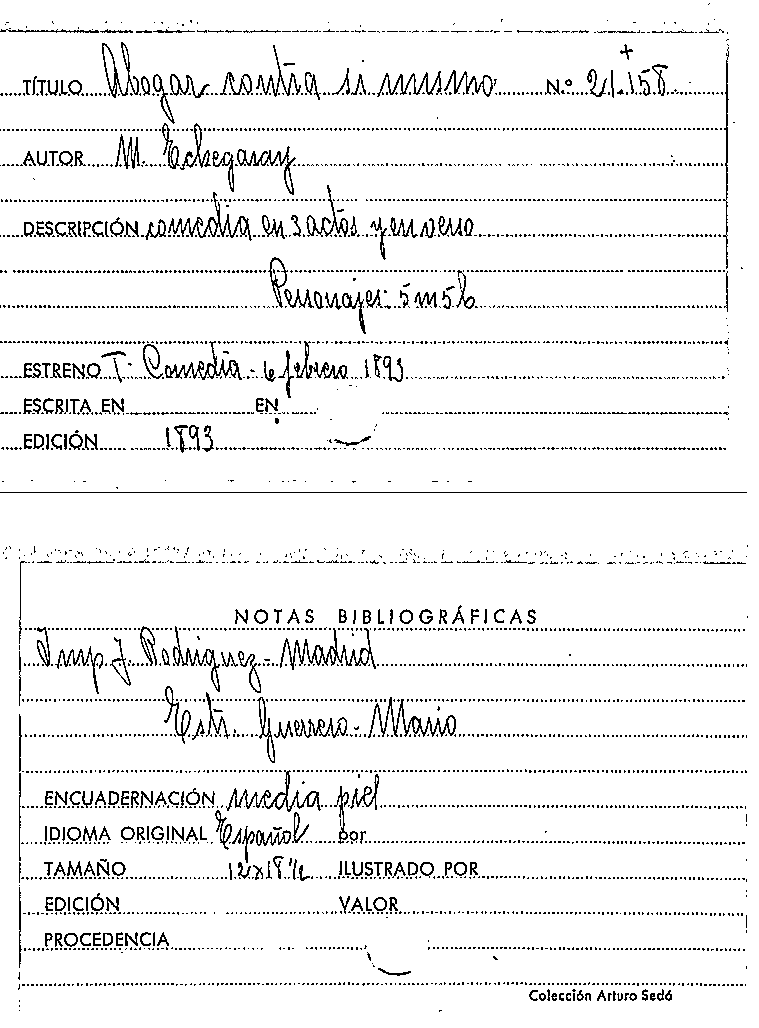 TÍTULO Abogar contra si mismo N.º 21.158
+
AUTOR M. Echegaray
DESCRIPCIÓN comedia en 3 actos y en verso
Personajes: 5 m 5 h
ESTRENO T. Comedia - 6 febrero 1893
ESCRITA EN EN
EDICIÓN 1893
NOTAS BIBLIOGRÁFICAS
Imp J. Rodriguez - Madrid
Estr. Guerrero - Mario
ENCUADERNACIÓN media piel
IDIOMA ORIGINAL Español por
TAMAÑO 12x18 ½ ILUSTRADO POR
EDICIÓN VALOR
PROCEDENCIA
Colección Arturo Sedó